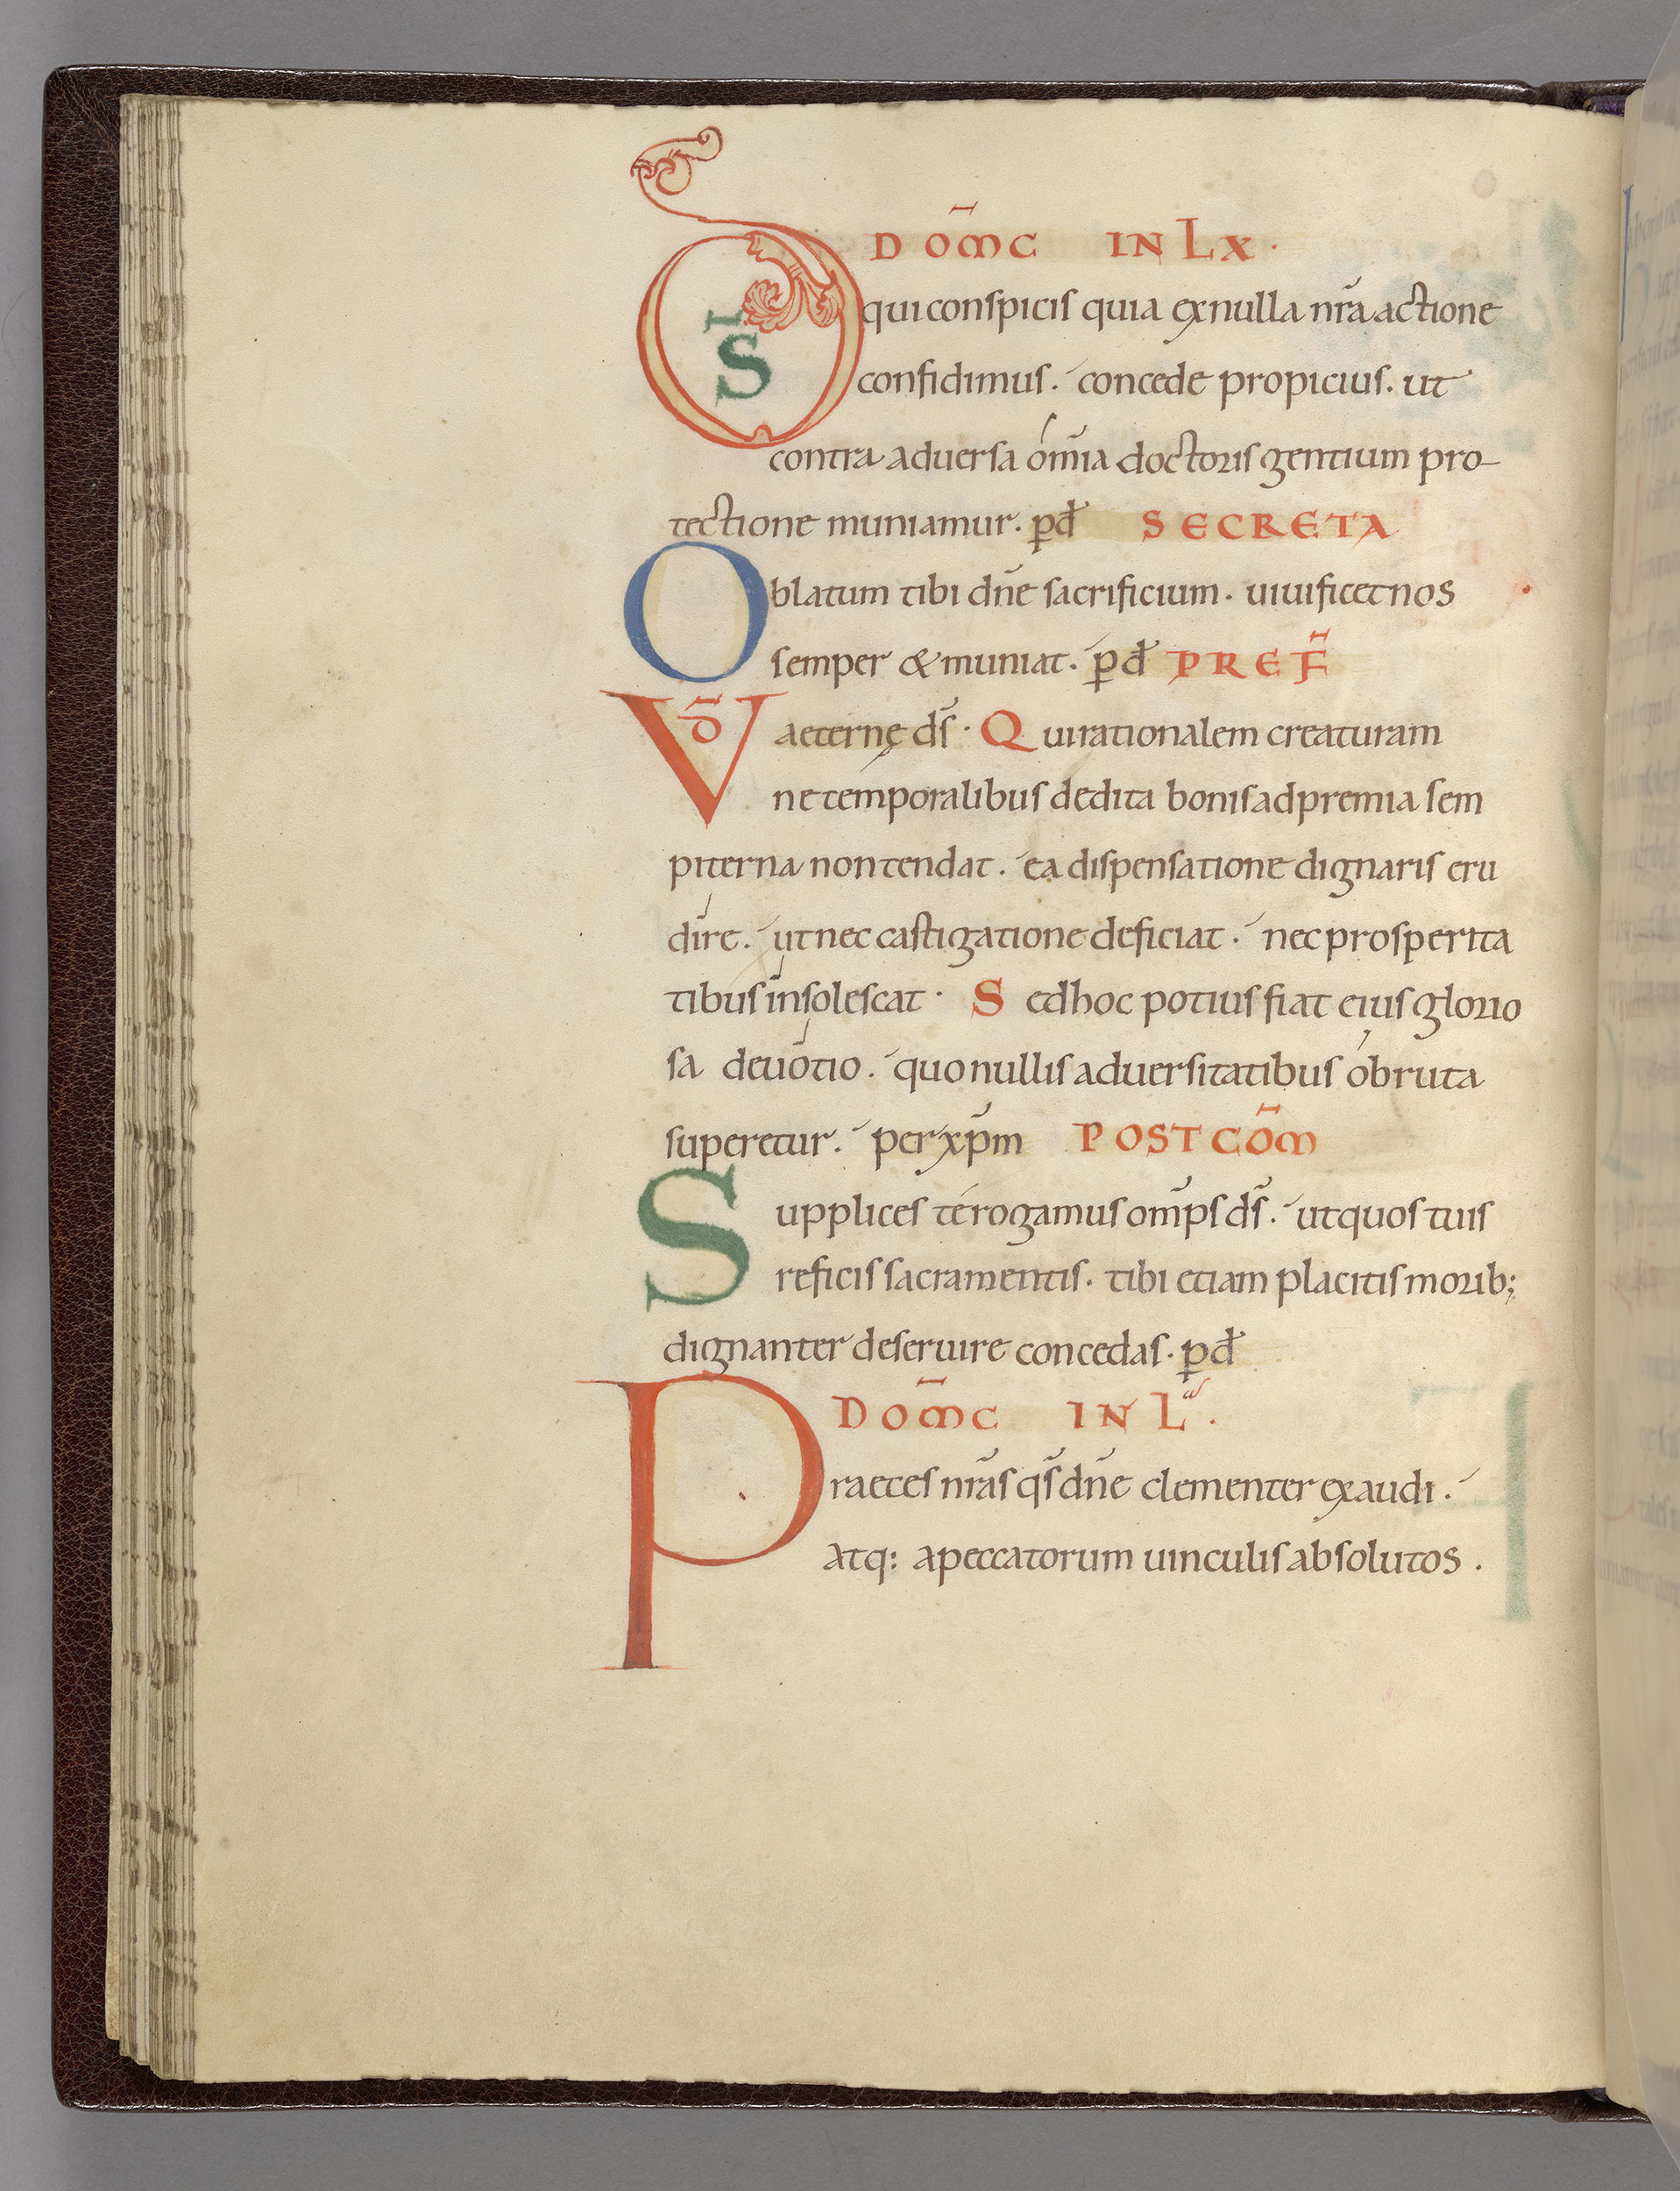 DOM̅C IN LX ·
D S̅ qui conspicis quia ex nulla nr̅a actione
confidimus. concede propicius. ut
contra aduersa om̅ia doctoris gentium pro-
tectione muniamur. p̱ đ SECRETA
Oblatum tibi dn̅e sacrificium. uiuificet nos
semper & muniat. p̱ đ PREF̅
VD̅ aeternę ds̅ · Qui rationalem creaturam
ne temporalibus dedita bonis ad premia sem
piterna non tendat. ea dispensatione dignaris eru
dire. ut nec castigatione deficiat. nec prosperita
tibus insolescat · Sed hoc potius fiat eius glorio
sa deuotio. quo nullis aduersitatibus obruta
superetur. per xp̅m POST COM̅
Supplices te rogamus om̅ps ds̅. ut quos tuis
reficis sacramentis. tibi etiam placitis morib;
dignanter deseruire concedas. p̱ đ
DOM̅C IN L ·
Praeces nr̅as qs̅ dn̅e clementer exaudi.
atq: a peccatorum uinculis absolutos.